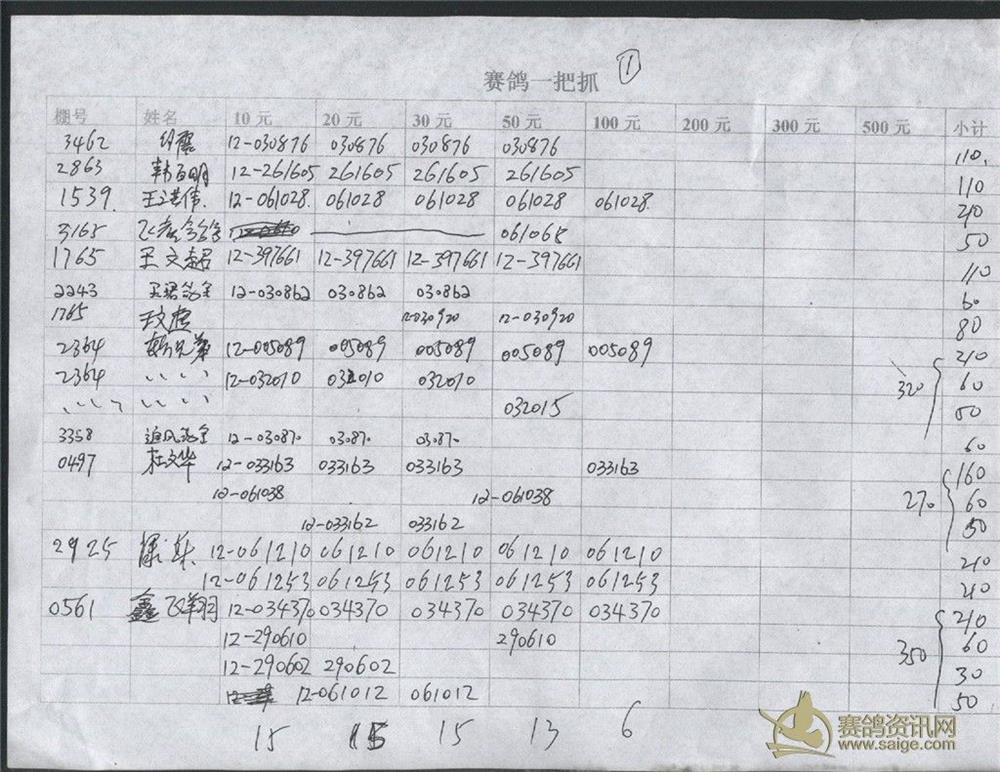 赛鸽一把抓 ①
棚号 姓名 10元 20元 30元 50元 100元 200元 300元 500元 小计
3462 12-030876 030876 030876 030876 110.
2863 韩百明 12-261605 261605 261605 261605 110
1539. 王洪伟 12-061028. 061028 061028 061028 061028. 210
3165 061065 50
1765 王文超 12-397661 12-397661 12-397661 12-397661 110
2243 12-030862 030862 030862 60
1765 12-030920 12-030920 80
2364 12-005089 005089 005089 005089 005089 210
2364 〃 12-032010 032010 032010 320 60
〃 〃 032015 50
3358 追风 12-030870 030870 030870 60
0497 杜文华 12-033163 033163 033163 033163 160
12-061038 12-061038 270 60
12-033162 033162 50
2925 12-061210 061210 061210 061210 061210 210
12-061253 061253 061253 061253 061253 210
0561 鑫飞翔 12-034370 034370 034370 034370 034370 210
12-290610 290610 350 60
12-290602 290602 30
12-061012 061012 50
15 15 15 13 6
赛鸽资讯网
www.saige.com